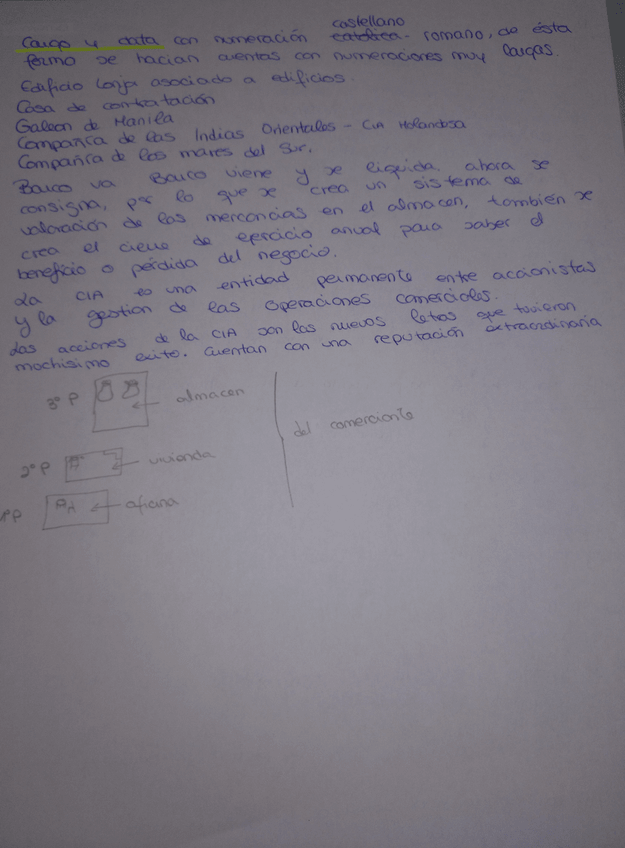 Cargo y data con numeración castellano - romano, de ésta
forma se hacían cuentas con numeraciones muy largas.
Edificio lonja asociado a edificios.
Casa de contratación
Galeon de Manila
Compañía de las Indias Orientales - CIA Holandesa
Compañía de los mares del Sur.
Barco va Barco viene y se liquida, ahora se
consigna, por lo que se crea un sistema de
valoración de las mercancías en el almacen, también se
crea el cierre de ejercicio anual para saber el
beneficio o pérdida del negocio.
La CIA es una entidad permanente entre accionistas
y la gestión de las operaciones comerciales.
Las acciones de la CIA son las nuevas letras que tuvieron
muchísimo éxito. Cuentan con una reputación extraordinaria
3º P almacen
del comerciante
2º P vivienda
1º P oficina